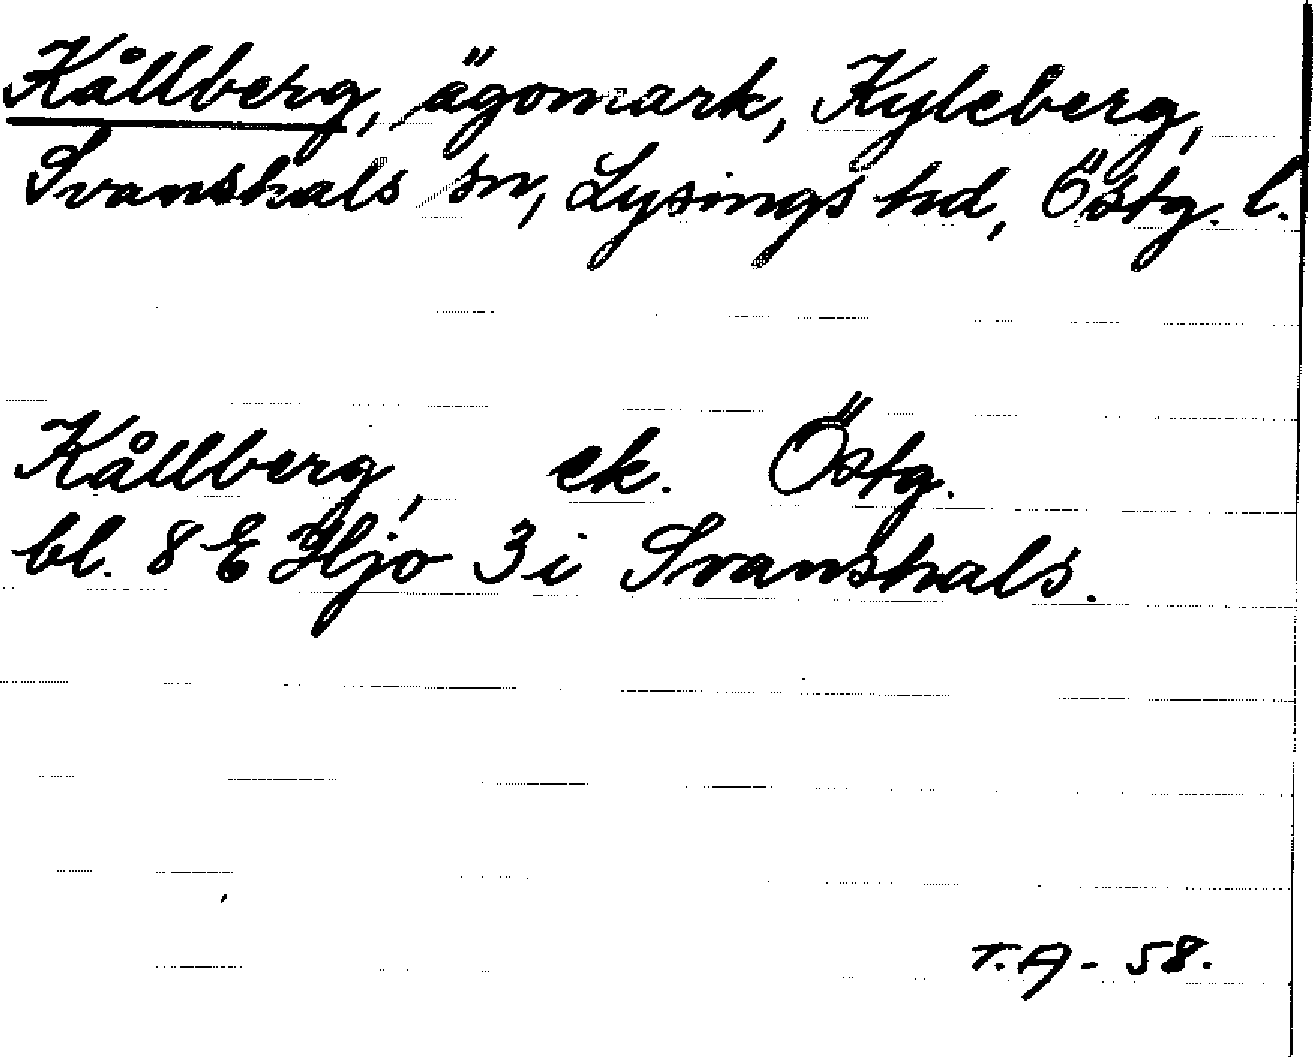 Kållberg, ägomark, Kyleberg,
Svanshals sn, Lysings hd, Östg. l.
Kållberg, ek. Östg.
bl. 8 E Hjo 3i Svanshals.
T.A - 58.